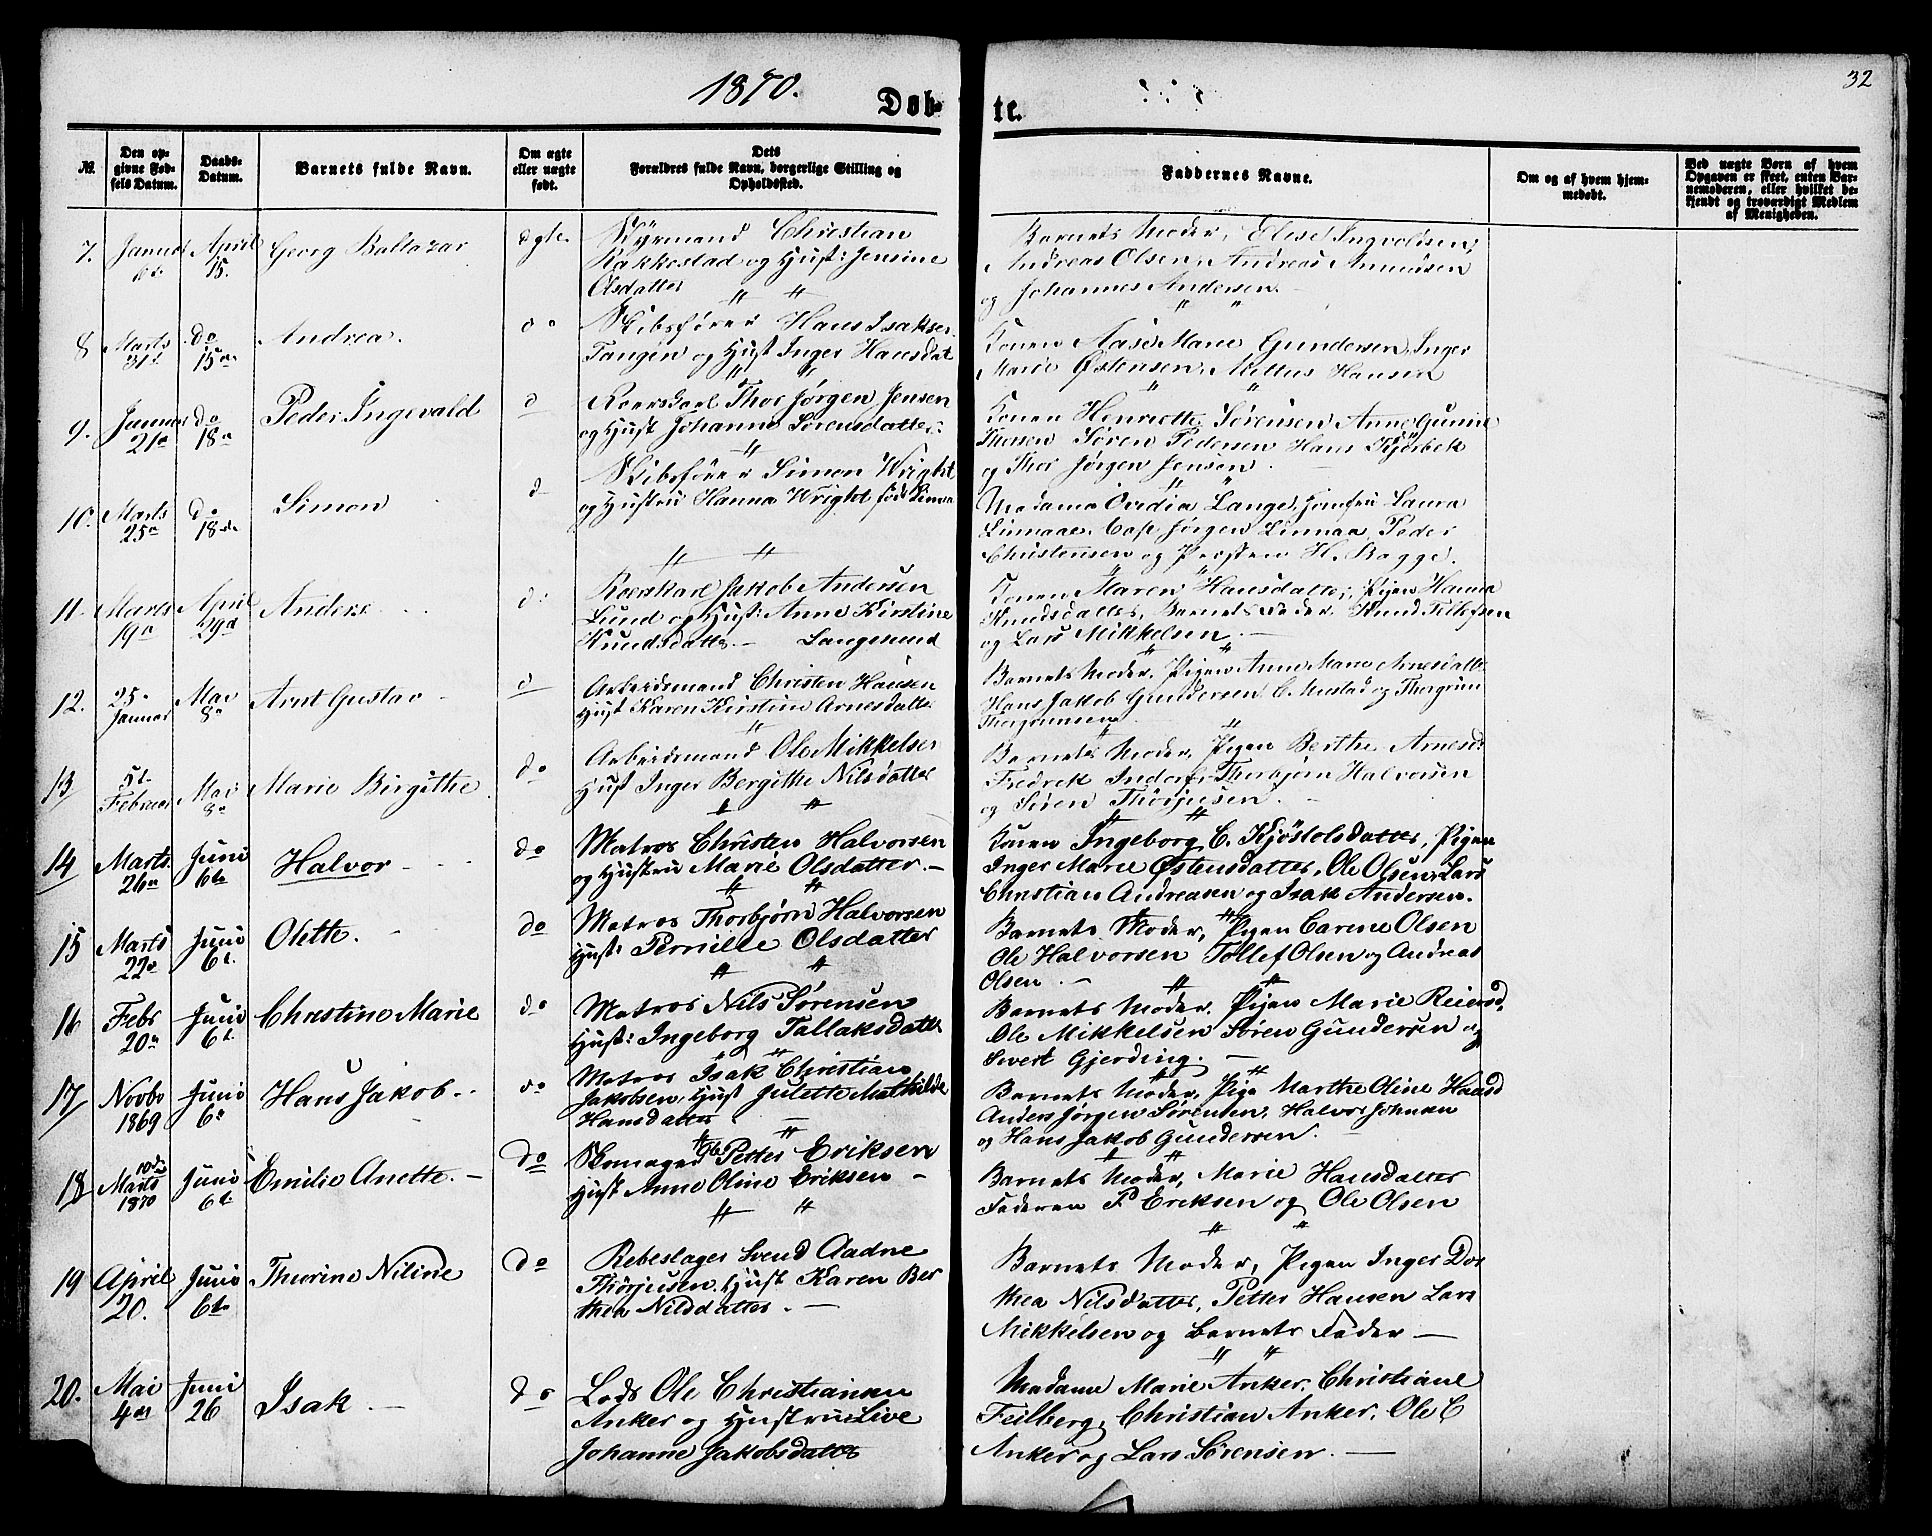 1870.
32
Døb-
te.
№
Den op-
givne Fød-
sels Datum.
Daabs-
Datum.
Barnets fulde Navn.
Om ægte
eller uægte
født.
Dets
Forældres fulde Navn, borgerlige Stilling og
Opholdssted.
Faddernes Navne.
Om og af hvem hjem-
medøbt.
Ved uægte Børn af hvem
Opgaven er skeet, enten Bar-
nemoderen, eller hvilket be-
kjendt og troværdigt Medlem
af Menigheden.
7. Januar April 15. Georg Baltazar ægte
Styrmand Christian
Rakkestad og Hust: Jensine
Olsdatter
Barnets Moder, Elise Ingvoldsen,
Andreas Olsen, Andreas
og Johannes Andersen.
8 Marts 31 do 15 Andrea. do
Skibsfører Hans Isaksen
Tangen og Hust Inger Hansdat
Konen Aase Marie Gundersen, Inger
Marie Østensen, Mettus Hansen
9. Januar 21 do 18 Peder Ingevald d
Roerskarl Thor Jørgen Jensen
og Hust Johanne Sørensdatter
Konen Henriette Sørensen Anne Gunine
Thorsen Søren Pedersen Hans Kjørbek
og Thor Jørgen Jensen
10. Marts 25 do 18 Simon d
Skibsfører Simon Wright
og Hustru Hanna Wright født Linnaa
Madama Ovidia Lange, Jomfru Laura
Linnaae, Cap Jørgen Linnaa, Peder
Christensen og Presten H. Bagge.
11. Marts 19 April 29 Anders d
Roerskarl Jakob Andersen
Lund og Hust: Anne Kirstine
Knudsdatter - Langesund
Konen Maren Hansdatter, Pigen Hanna
Knudsdatter, Barnets Fader, Knud Tellefsen
og Lars Mikkelsen
12. 25 Januar Mai 8 Arnt Gustav d
Arbeidsmand Christen Hansen
Hust Karen Kirstine Arnesdatter
Barnets Moder, Pigen Anne Marie Arnesdatt
Hans Jakob Gundersen C. Mustad og Thorgrim
Thorgrimsen
13 5t Februar Mai 8 Marie Birgithe do
Arbeidsmand Ole Mikkelsen
Hust Inger Bergithe Nilsdatter
Barnets Moder, Pigen Berthe Arnesd:
Fredrek Thorbjørn Halvorsen
og Søren Thorjusen.
14 Marts 26 Juni 6te Halvor do
Matros Christen Halvorsen
og Hustru Marie Olsdatter -
Konen Ingeborg C. Kjøstolsdatter, Pigen
Inger Marie Østensdatter, Ole Olsen, Lars
Christian Andreasen og Isak Andersen.
15 Marts 22 Juni 6t. Olette. do
Matros Thorbjørn Halvorsen
Hust: Pernille Olsdatter
Barnets Moder, Pigen Carine Olsen
Ole Halvorsen Tollef Olsen og Andreas
Olsen
16 Febr 20 Juni 6t. Christine Marie do
Matros Nils Sørensen
Hust: Ingeborg Tallaksdatter
Barnets Moder, Pigen Marie Reiersd.
Ole Mikkelsen Søren Gundersen og
Sivert Gjerding.
17 Novbr 1869 Juni 6 Hans Jakob do
Matros Isak Christian
Jakobsen, Hust Julette Mathilde
Hansdatter
Barnets Moder, Pige Marthe Oline Hansd
Anders Jørgen Sørensen, Halvor Johnsen
og Hans Jakob Gundersen.
18 10de Marts 1870 Juni 6t Emilie Anette do
Skomager Petter Eriksen
Hust Anne Oline Eriksen
Barnets Moder, Marie Hansdatter
Faderen P Eriksen og Ole Olsen
19 April 20. Juni 6te Thorine Niline do
Rebslager Svend Aadne
Thorjusen, Hust Karen Ber
thea Nilsdatter.
Barnets Moder, Pigen Inger Dor
thea Nilsdatter, Petter Hansen Lars
Mikkelsen og Barnets Fader
20. Mai 4de Juni 26 Isak do
Lods Ole Christiansen
Anker og Hustru Live
Johanne Jakobsdatter
Madame Marie Anker, Christiane
Feilberg, Christian Anker, Ole C
Anker og Lars Sørensen.